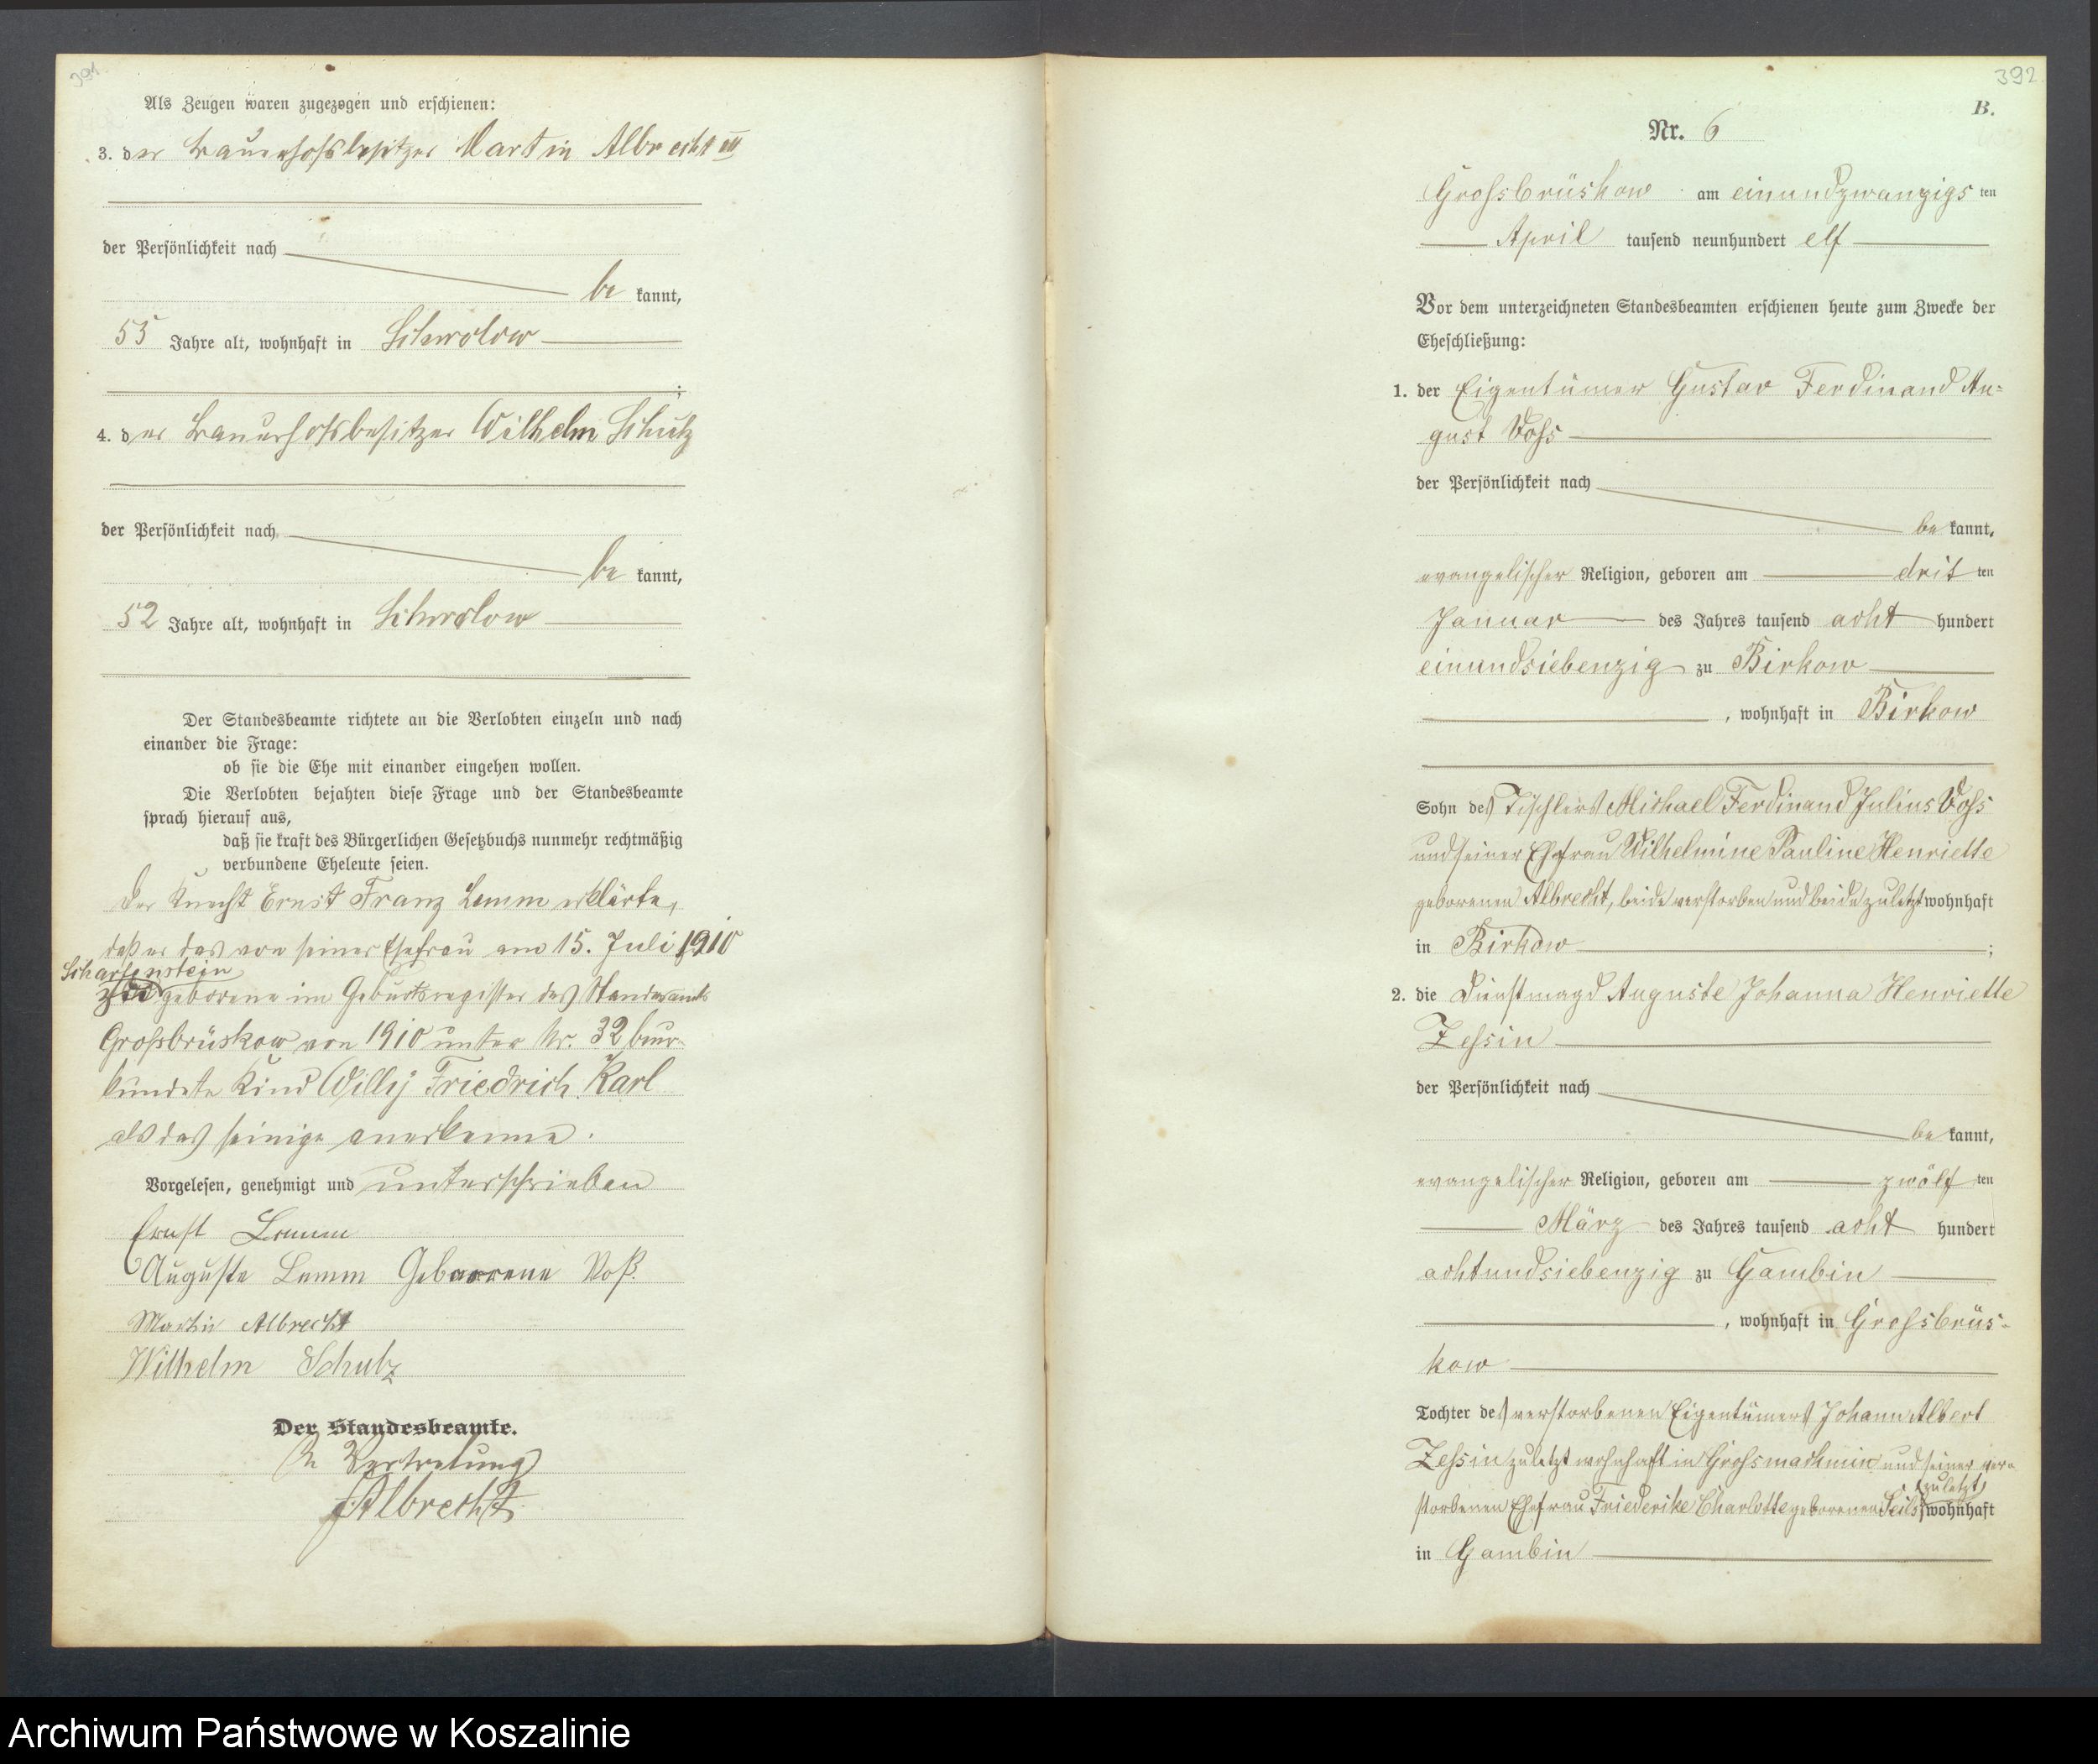 391.
Als Zeugen waren zugezogen und erschienen:
3. der Bauerhofsbesitzer Martin Albrecht III
der Persönlichkeit nach
be kannt,
55 Jahre alt, wohnhaft in Schwolow
;
4. der Bauerhofsbesitzer Wilhelm Schulz
der Persönlichkeit nach
be kannt,
52 Jahre alt, wohnhaft in Schwolow
Der Standesbeamte richtete an die Verlobten einzeln und nach
einander die Frage:
ob sie die Ehe mit einander eingehen wollen.
Die Verlobten bejahten diese Frage und der Standesbeamte
sprach hierauf aus,
daß sie kraft des Bürgerlichen Gesetzbuchs nunmehr rechtmäßig
verbundene Eheleute seien.
Der Knecht Ernst Franz Lemm erklärte,
daß er das von seiner Ehefrau am 15. Juli 1910
Scharsenstein
zu geborene im Geburtsregister des Standesamts
Grossbrüskow von 1910 unter Nr. 32 beur-
kundete Kind Willy Friedrich Karl
als das seinige anerkenne.
Vorgelesen, genehmigt und unterschrieben
Ernst Lemm
Auguste Lemm Geborene Voß.
Martin Albrecht
Wilhelm Schulz
Der Standesbeamte.
In Vertretung
Albrecht
392.
B.
Nr. 6
Grossbrüskow am einundzwanzigs ten
April tausend neunhundert elf
Vor dem unterzeichneten Standesbeamten erschienen heute zum Zwecke der
Eheschließung:
1. der Eigentümer Gustav Ferdinand Au-
gust Voss
der Persönlichkeit nach
be kannt,
evangelischer Religion, geboren am drit ten
Januar des Jahres tausend acht hundert
einundsiebenzig zu Birkow
, wohnhaft in Birkow
Sohn des Tischlers Michael Ferdinand Julius Voss
und seiner Ehefrau Wilhelmine Pauline Henriette
geborenen Albrecht, beide verstorben und beide zuletzt wohnhaft
in Birkow ;
2. die Dienstmagd Auguste Johanna Henriette
Zessin
der Persönlichkeit nach
be kannt,
evangelischer Religion, geboren am zwölf ten
März des Jahres tausend acht hundert
achtundsiebenzig zu Gambin
, wohnhaft in Grossbrüs-
kow
Tochter des verstorbenen Eigentümers Johann Albert
Zessin zuletzt wohnhaft in Grossmachmin und seiner ver-
zuletzt
storbenen Ehefrau Friederike Charlotte geborenen Seils, wohnhaft
in Gambin
Archiwum Państwowe w Koszalinie